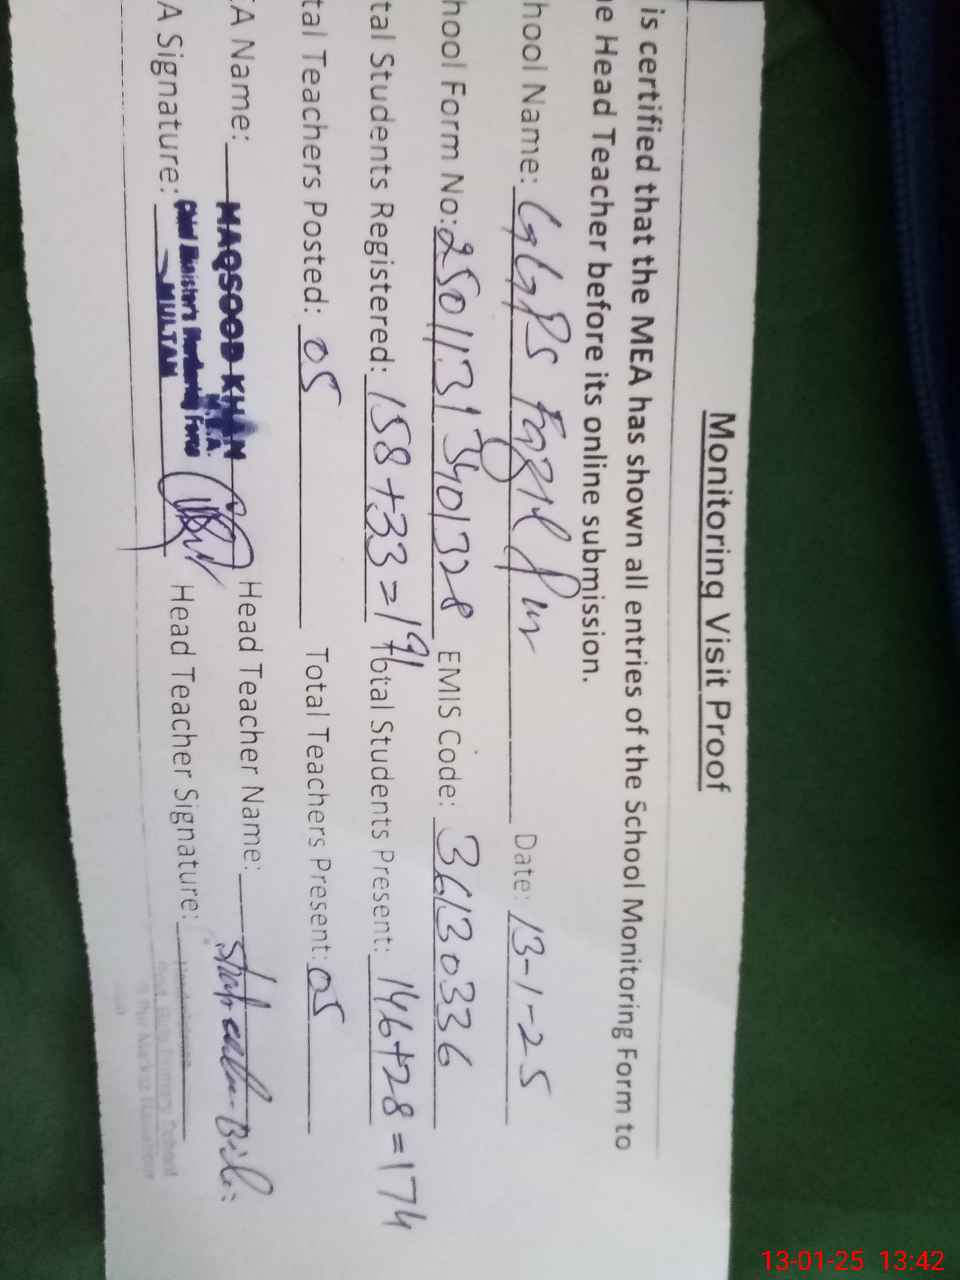 Monitoring Visit Proof
is certified that the MEA has shown all entries of the School Monitoring Form to
e Head Teacher before its online submission.
hool Name: GGPS Fazil Pur Date: 13-1-25
hool Form No: EMIS Code: 36130336
tal Students Registered: 158+33=191 Total Students Present: 146+28=174
tal Teachers Posted: 05 Total Teachers Present: 05
EA Name: MAQSOOD KHAN Head Teacher Name: Bibi
M.E.A.
A Signature: Chief Minister's Monitoring Force Head Teacher Signature:
MULTAN
13-01-25 13:42